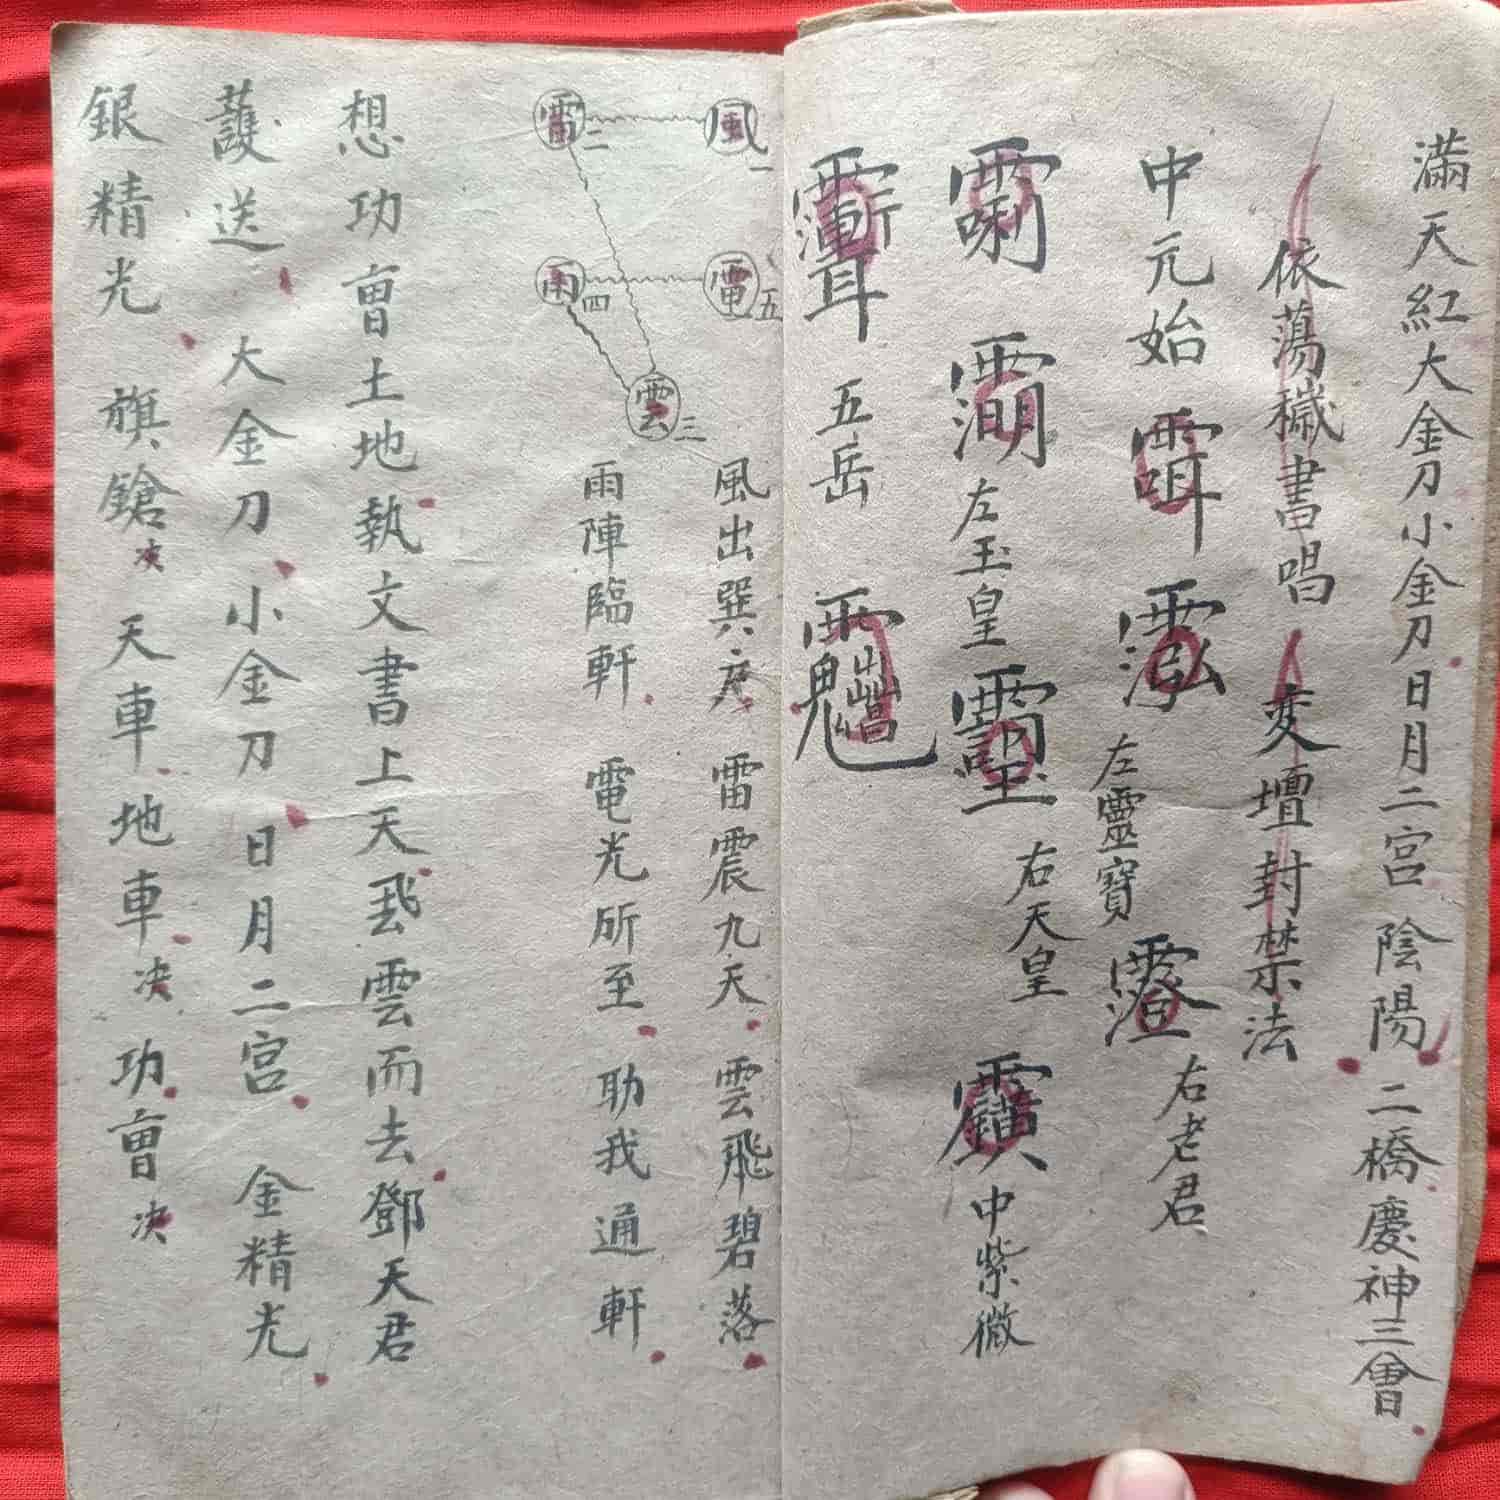 滿天紅大金刀小金刀日月二宮陰陽二橋慶神三會
依蕩穢書唱 变壇封禁法
中元始 左靈寶 右老君
左玉皇 右天皇 中紫微
五岳
風一
雷二
雲三
雨四
電五
風出巽 雷震九天 雲飛碧落
雨陣臨軒 電光所至 助我通軒
想功曺土地執文書上天 雲而去鄧天君
護送 大金刀 小金刀 日月二宮 金精光
銀精光 旗鎗决 天車地車决 功曺决